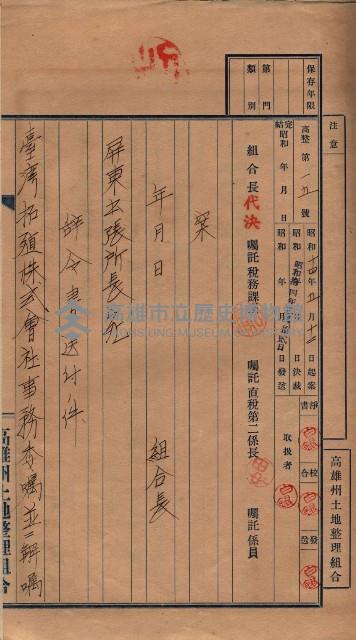 保存年限
第 門
類 別
注意
高雄州土地整理組合
高整第一五號
完結 昭和 年 月 日
昭和十四年五月十二日起案
昭和 年 月 日決裁
昭和 年 月 日發送
淨書
校合
發送
取扱者
組合長
代決
囑託稅務課
囑託直稅第二係長
囑託係員
案
年月日
組合長
屏東出張所長宛
辞令書送付ノ件
臺灣拓殖株式會社事務本囑並ニ解囑
高雄州土地整理組合
高雄市立歷史博物館
KAOHSIUNG MUSEUM OF HISTORY